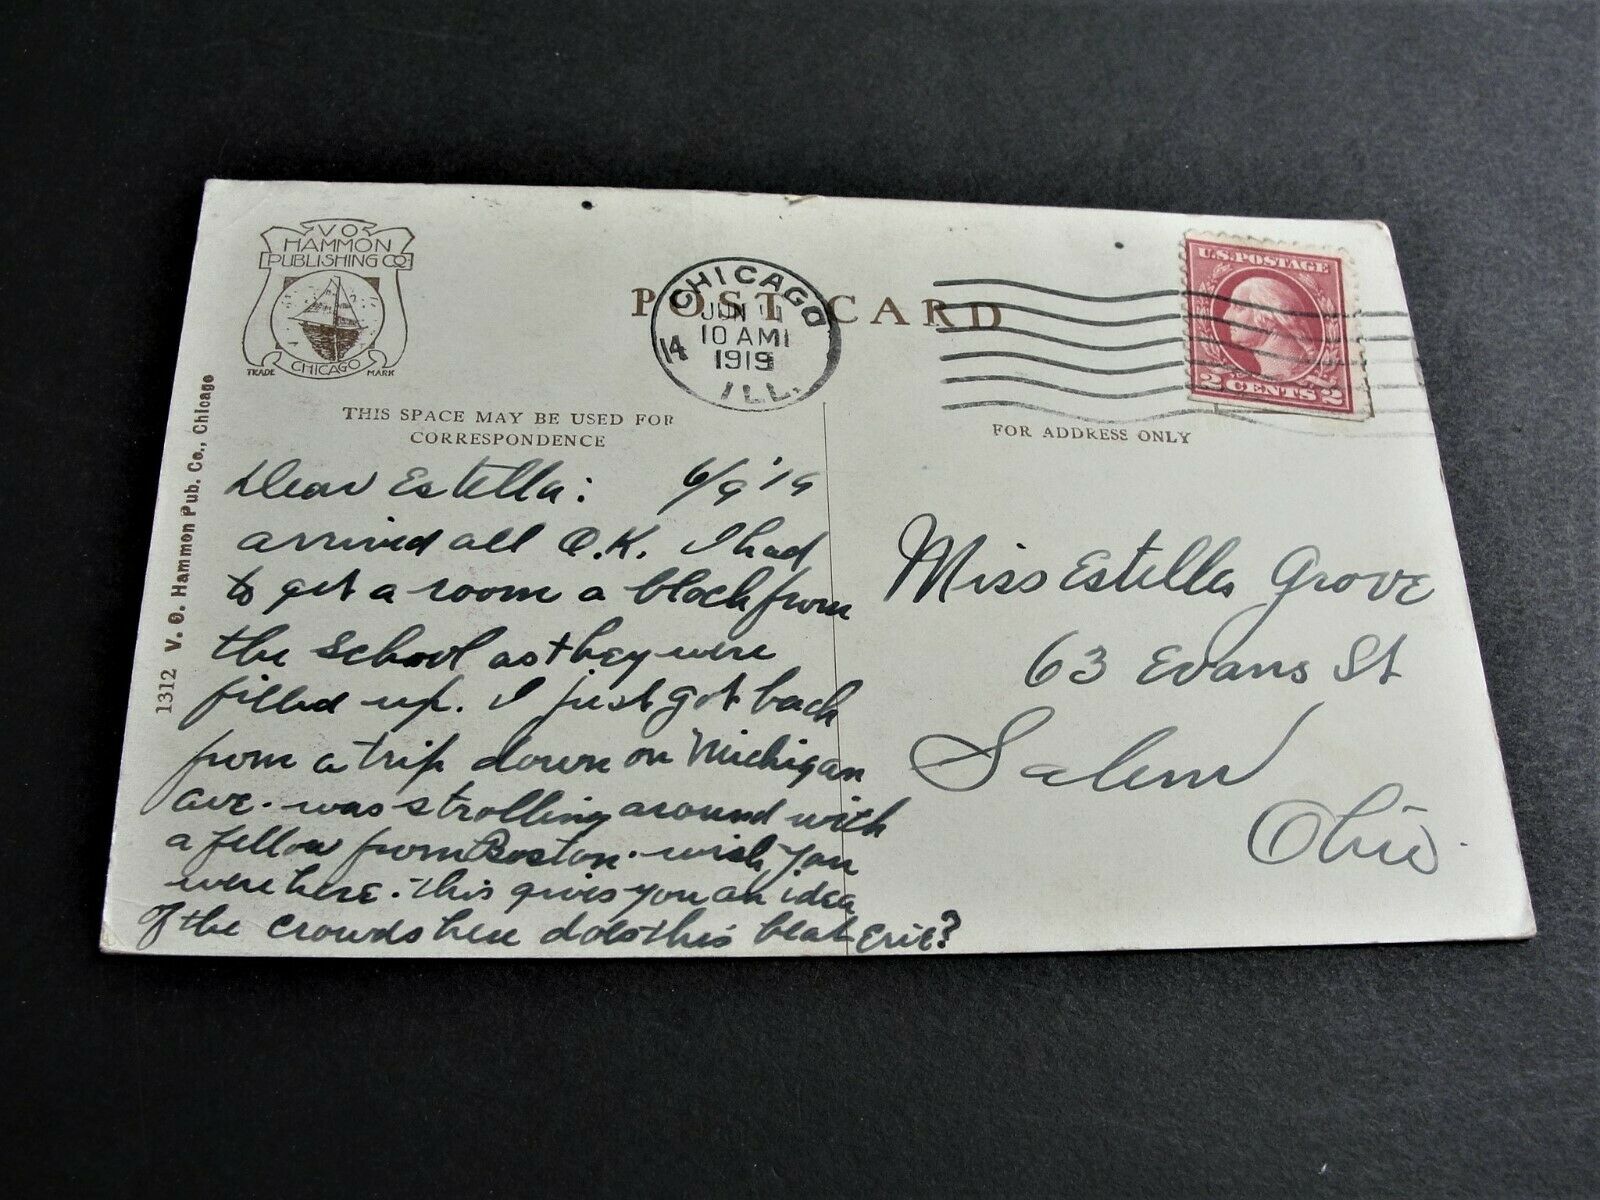 V O
HAMMON
PUBLISHING CO
TRADE CHICAGO MARK
POST CARD
CHICAGO
JUN
10 AM
1919
ILL.
14
U.S. POSTAGE
2 CENTS 2
THIS SPACE MAY BE USED FOR
CORRESPONDENCE
FOR ADDRESS ONLY
1312 V. O. Hammon Pub. Co., Chicago
Dear Estella: 6/9 '19
arrived all O.K. I had
to get a room a block from
the school as they were
filled up. I just got back
from a trip down on Michigan
ave. was strolling around with
a fellow from Boston. wish you
were here. This gives you an idea
of the crowds here does this beat Erie?
Miss Estella Grove
63 Evans St
Salem
Ohio.